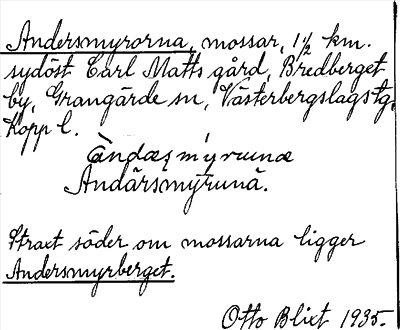 Andersmyrorna, mossar, 1½ km.
sydöst Carl Matts gård, Bredberget
by, Grangärde sn, Västerbergslags tg,
Kopp l.
Andärsmýrunä.
Straxt söder om mossarna ligger
Andersmyrberget.
Otto Blixt 1935.